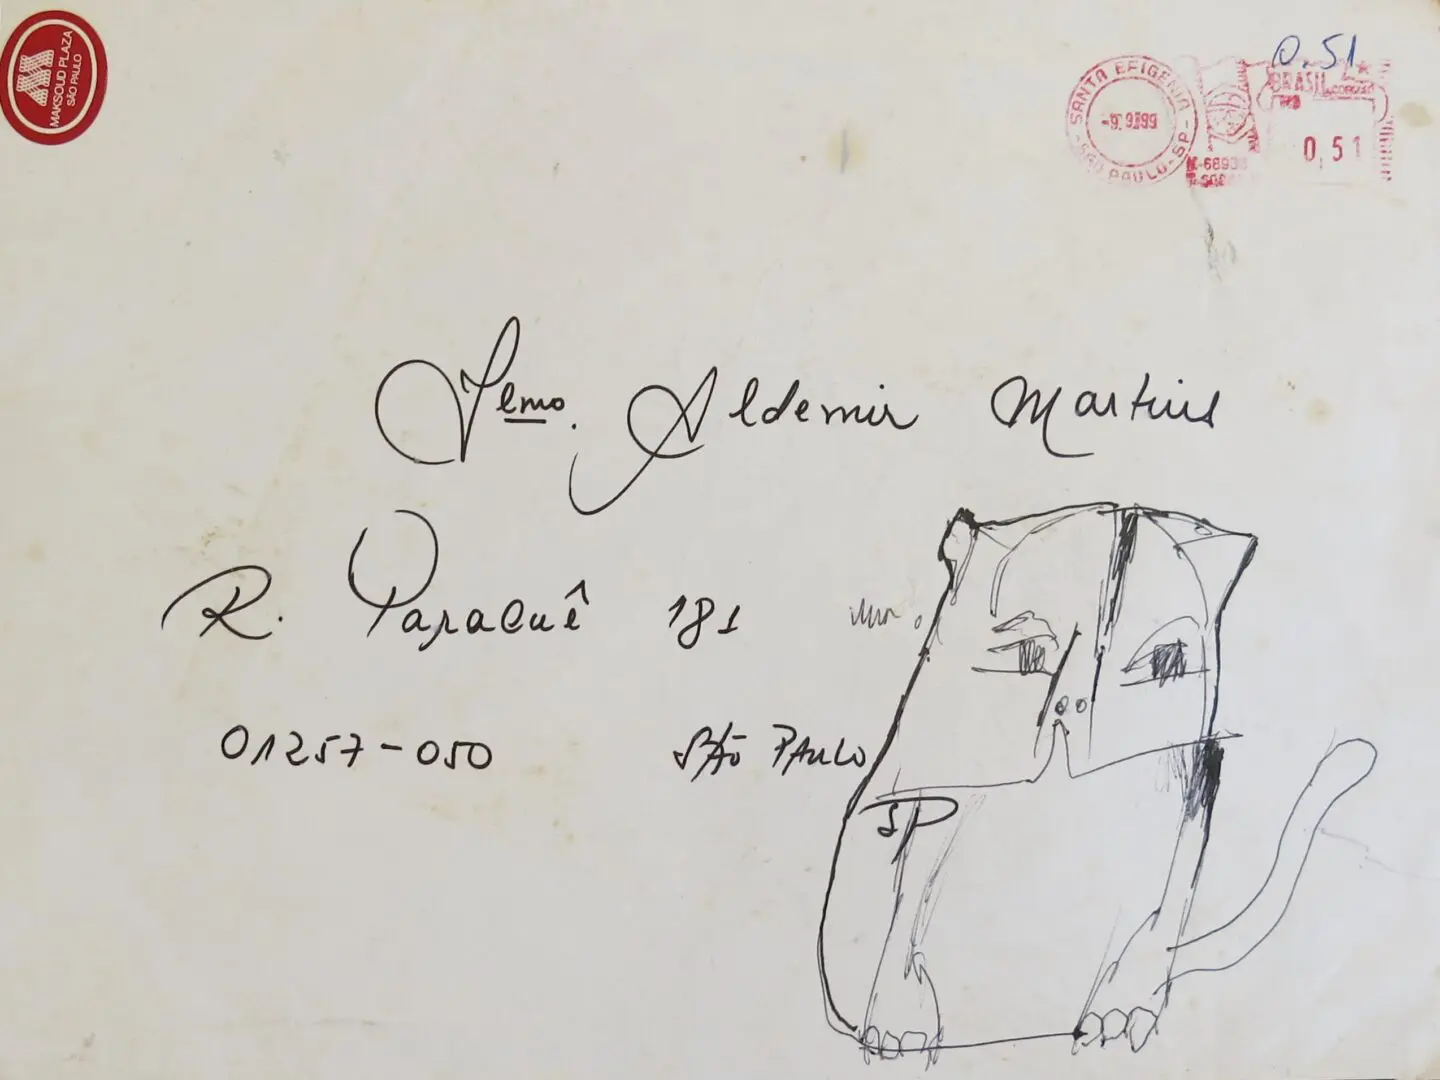 MAKSOUD PLAZA
SÃO PAULO
SANTA EFIGENIA
-9.9.99
SÃO PAULO - SP -
0.51
BRASIL
0,51
Aldemir Martins
R. Paracuê 181
01257-050 SÃO PAULO
SP